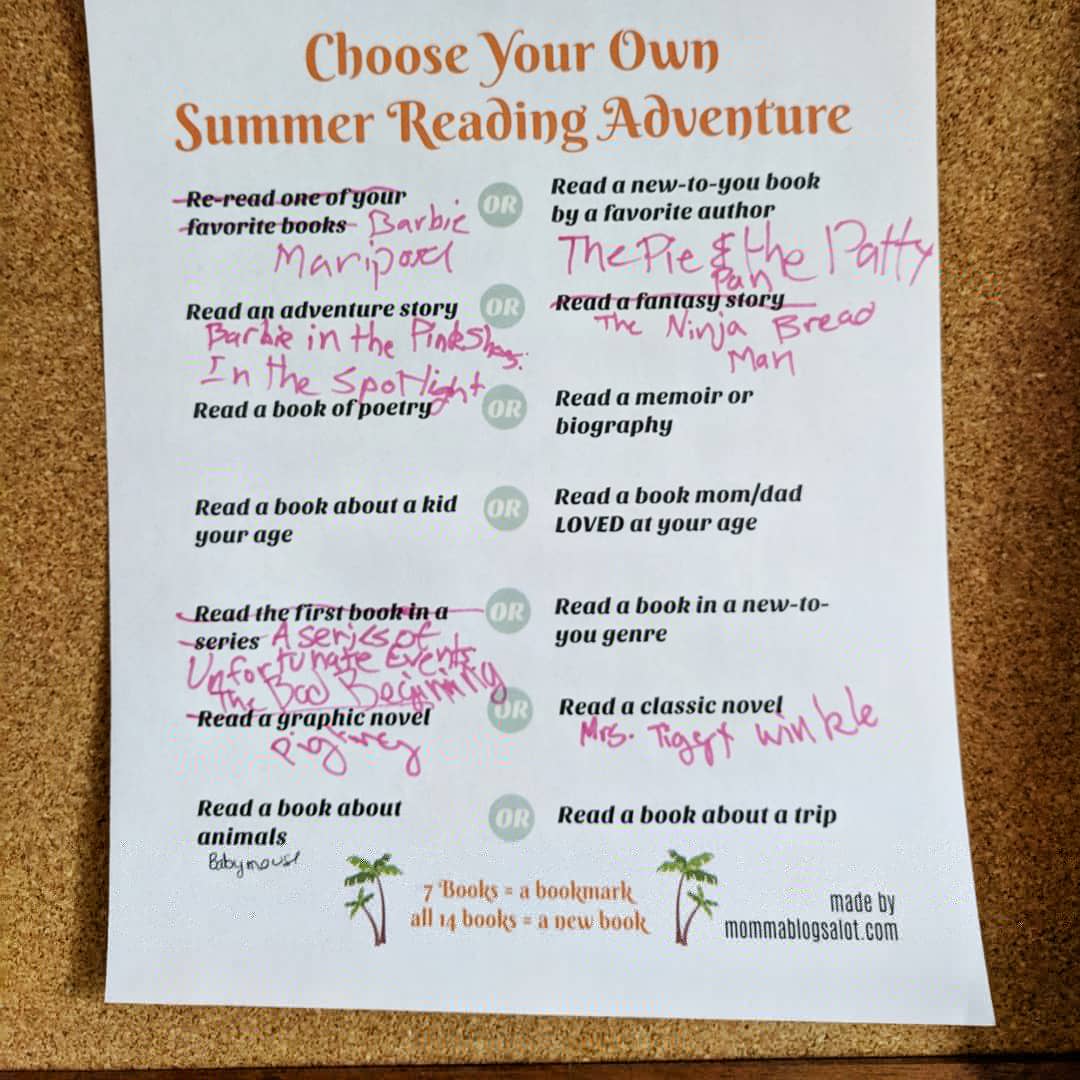 Choose Your Own
Summer Reading Adventure
Re-read one of your
favorite books Barbie
Mariposa
OR
Read a new-to-you book
by a favorite author
The Pie & the Patty
Pan
Read an adventure story
Barbie in the Pink Shoes:
In the Spotlight
OR
Read a fantasy story
The Ninja Bread
Man
Read a book of poetry
OR
Read a memoir or
biography
Read a book about a kid
your age
OR
Read a book mom/dad
LOVED at your age
Read the first book in a
series A series of
Unfortunate Events
The Bad Beginning
OR
Read a book in a new-to-
you genre
Read a graphic novel
OR
Read a classic novel
Mrs. Tiggy Winkle
Read a book about
animals
Babymouse
OR
Read a book about a trip
7 Books = a bookmark
all 14 books = a new book
made by
mommablogsalot.com